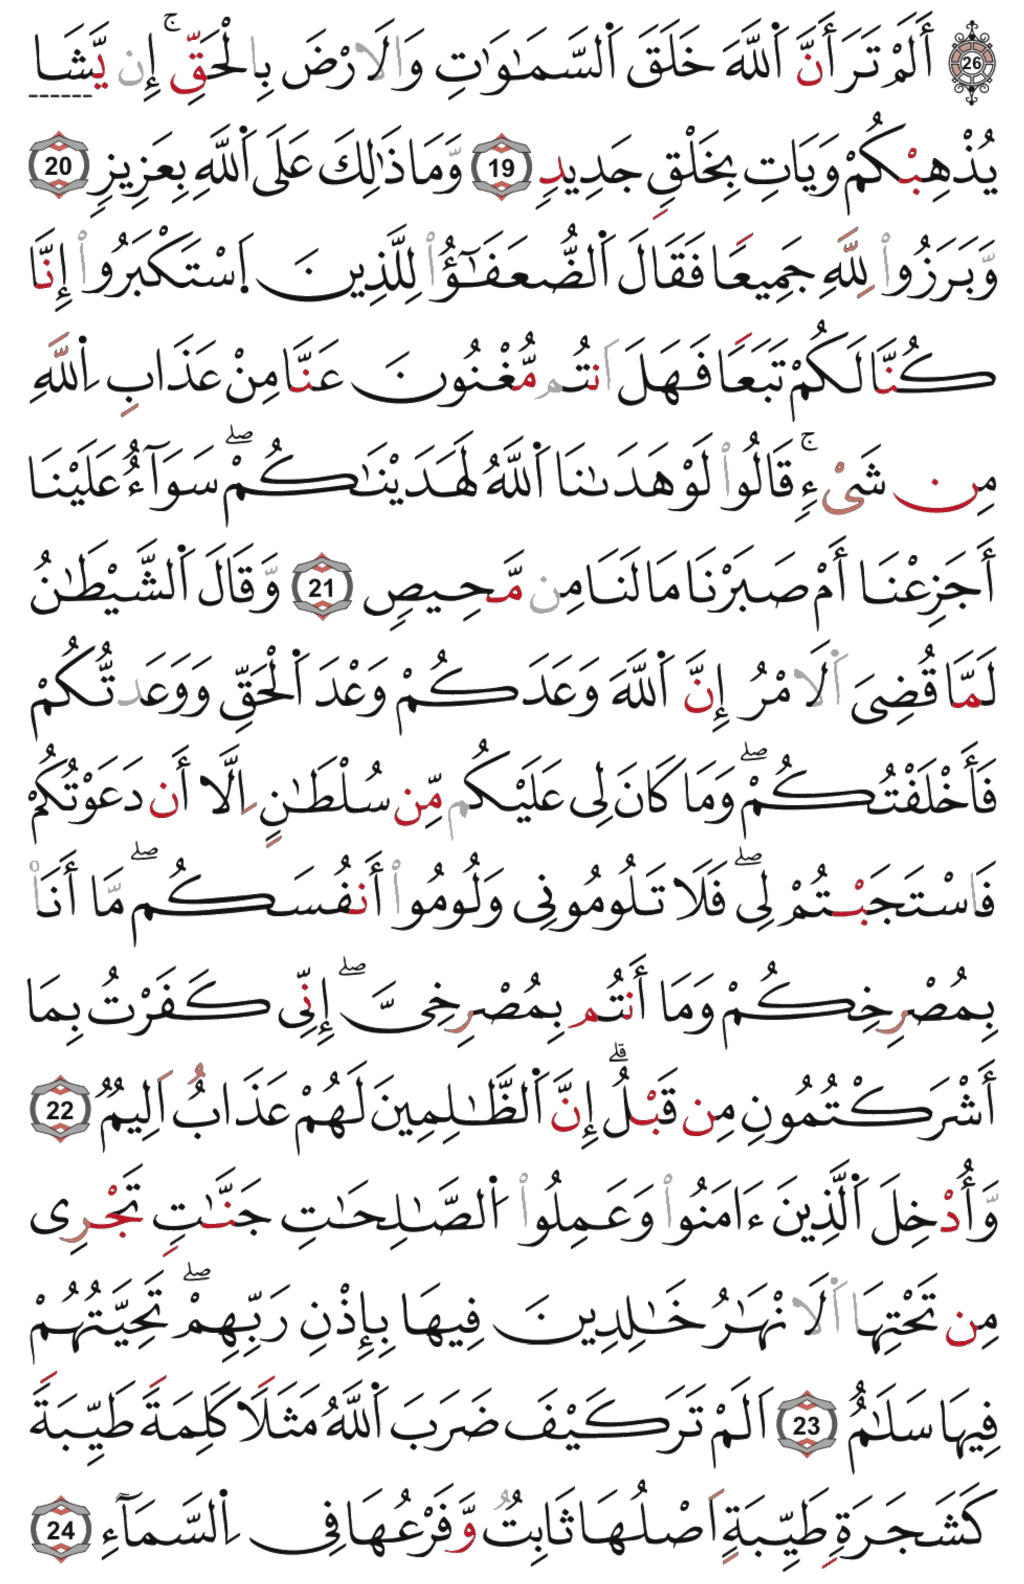 26 أَلَمْ تَرَ أَنَّ اَ۬للَّهَ خَلَقَ اَ۬لسَّمَٰوَٰتِ وَالَارْضَ بِالْحَقِّۚ إِن يَّشَا
يُذْهِبْكُمْ وَيَاتِ بِخَلْقٖ جَدِيدٖ 19 وَمَا ذَٰلِكَ عَلَى اَ۬للَّهِ بِعَزِيزٖ 20
وَبَرَزُواْ لِلَّهِ جَمِيعٗا فَقَالَ اَ۬لضُّعَفَٰٓؤُاْ لِلَّذِينَ اَ۪سْتَكْبَرُواْ إِنَّا
كُنَّا لَكُمْ تَبَعٗا فَهَلَ اَنتُم مُّغْنُونَ عَنَّا مِنْ عَذَابِ اِ۬للَّهِ
مِن شَےْءٖۚ قَالُواْ لَوْ هَدَىٰنَا اَ۬للَّهُ لَهَدَيْنَٰكُمْۖ سَوَآءٌ عَلَيْنَا
أَجَزِعْنَا أَمْ صَبَرْنَا مَا لَنَا مِن مَّحِيصٖ 21 وَقَالَ اَ۬لشَّيْطَٰنُ
لَمَّا قُضِيَ اَ۬لَامْرُ إِنَّ اَ۬للَّهَ وَعَدَكُمْ وَعْدَ اَ۬لْحَقِّ وَوَعَدتُّكُمْ
فَأَخْلَفْتُكُمْۖ وَمَا كَانَ لِي عَلَيْكُم مِّن سُلْطَٰنٍ اِلَّا أَن دَعَوْتُكُمْ
فَاسْتَجَبْتُمْ لِيۖ فَلَا تَلُومُونِي وَلُومُواْ أَنفُسَكُمۖ مَّا أَنَا۠
بِمُصْرِخِكُمْ وَمَا أَنتُم بِمُصْرِخِيَّۖ إِنِّي كَفَرْتُ بِمَا
أَشْرَكْتُمُونِ مِن قَبْلُۗ إِنَّ اَ۬لظَّٰلِمِينَ لَهُمْ عَذَابٌ اَلِيمٞ 22
وَأُدْخِلَ اَ۬لَّذِينَ ءَامَنُواْ وَعَمِلُواْ اُ۬لصَّٰلِحَٰتِ جَنَّٰتٖ تَجْرِي
مِن تَحْتِهَا اَ۬لَانْهَٰرُ خَٰلِدِينَ فِيهَا بِإِذْنِ رَبِّهِمْۖ تَحِيَّتُهُمْ
فِيهَا سَلَٰمٌ 23 اَلَمْ تَرَ كَيْفَ ضَرَبَ اَ۬للَّهُ مَثَلٗا كَلِمَةٗ طَيِّبَةٗ
كَشَجَرَةٖ طَيِّبَةٍ اَصْلُهَا ثَابِتٞ وَفَرْعُهَا فِي اِ۬لسَّمَآءِ 24